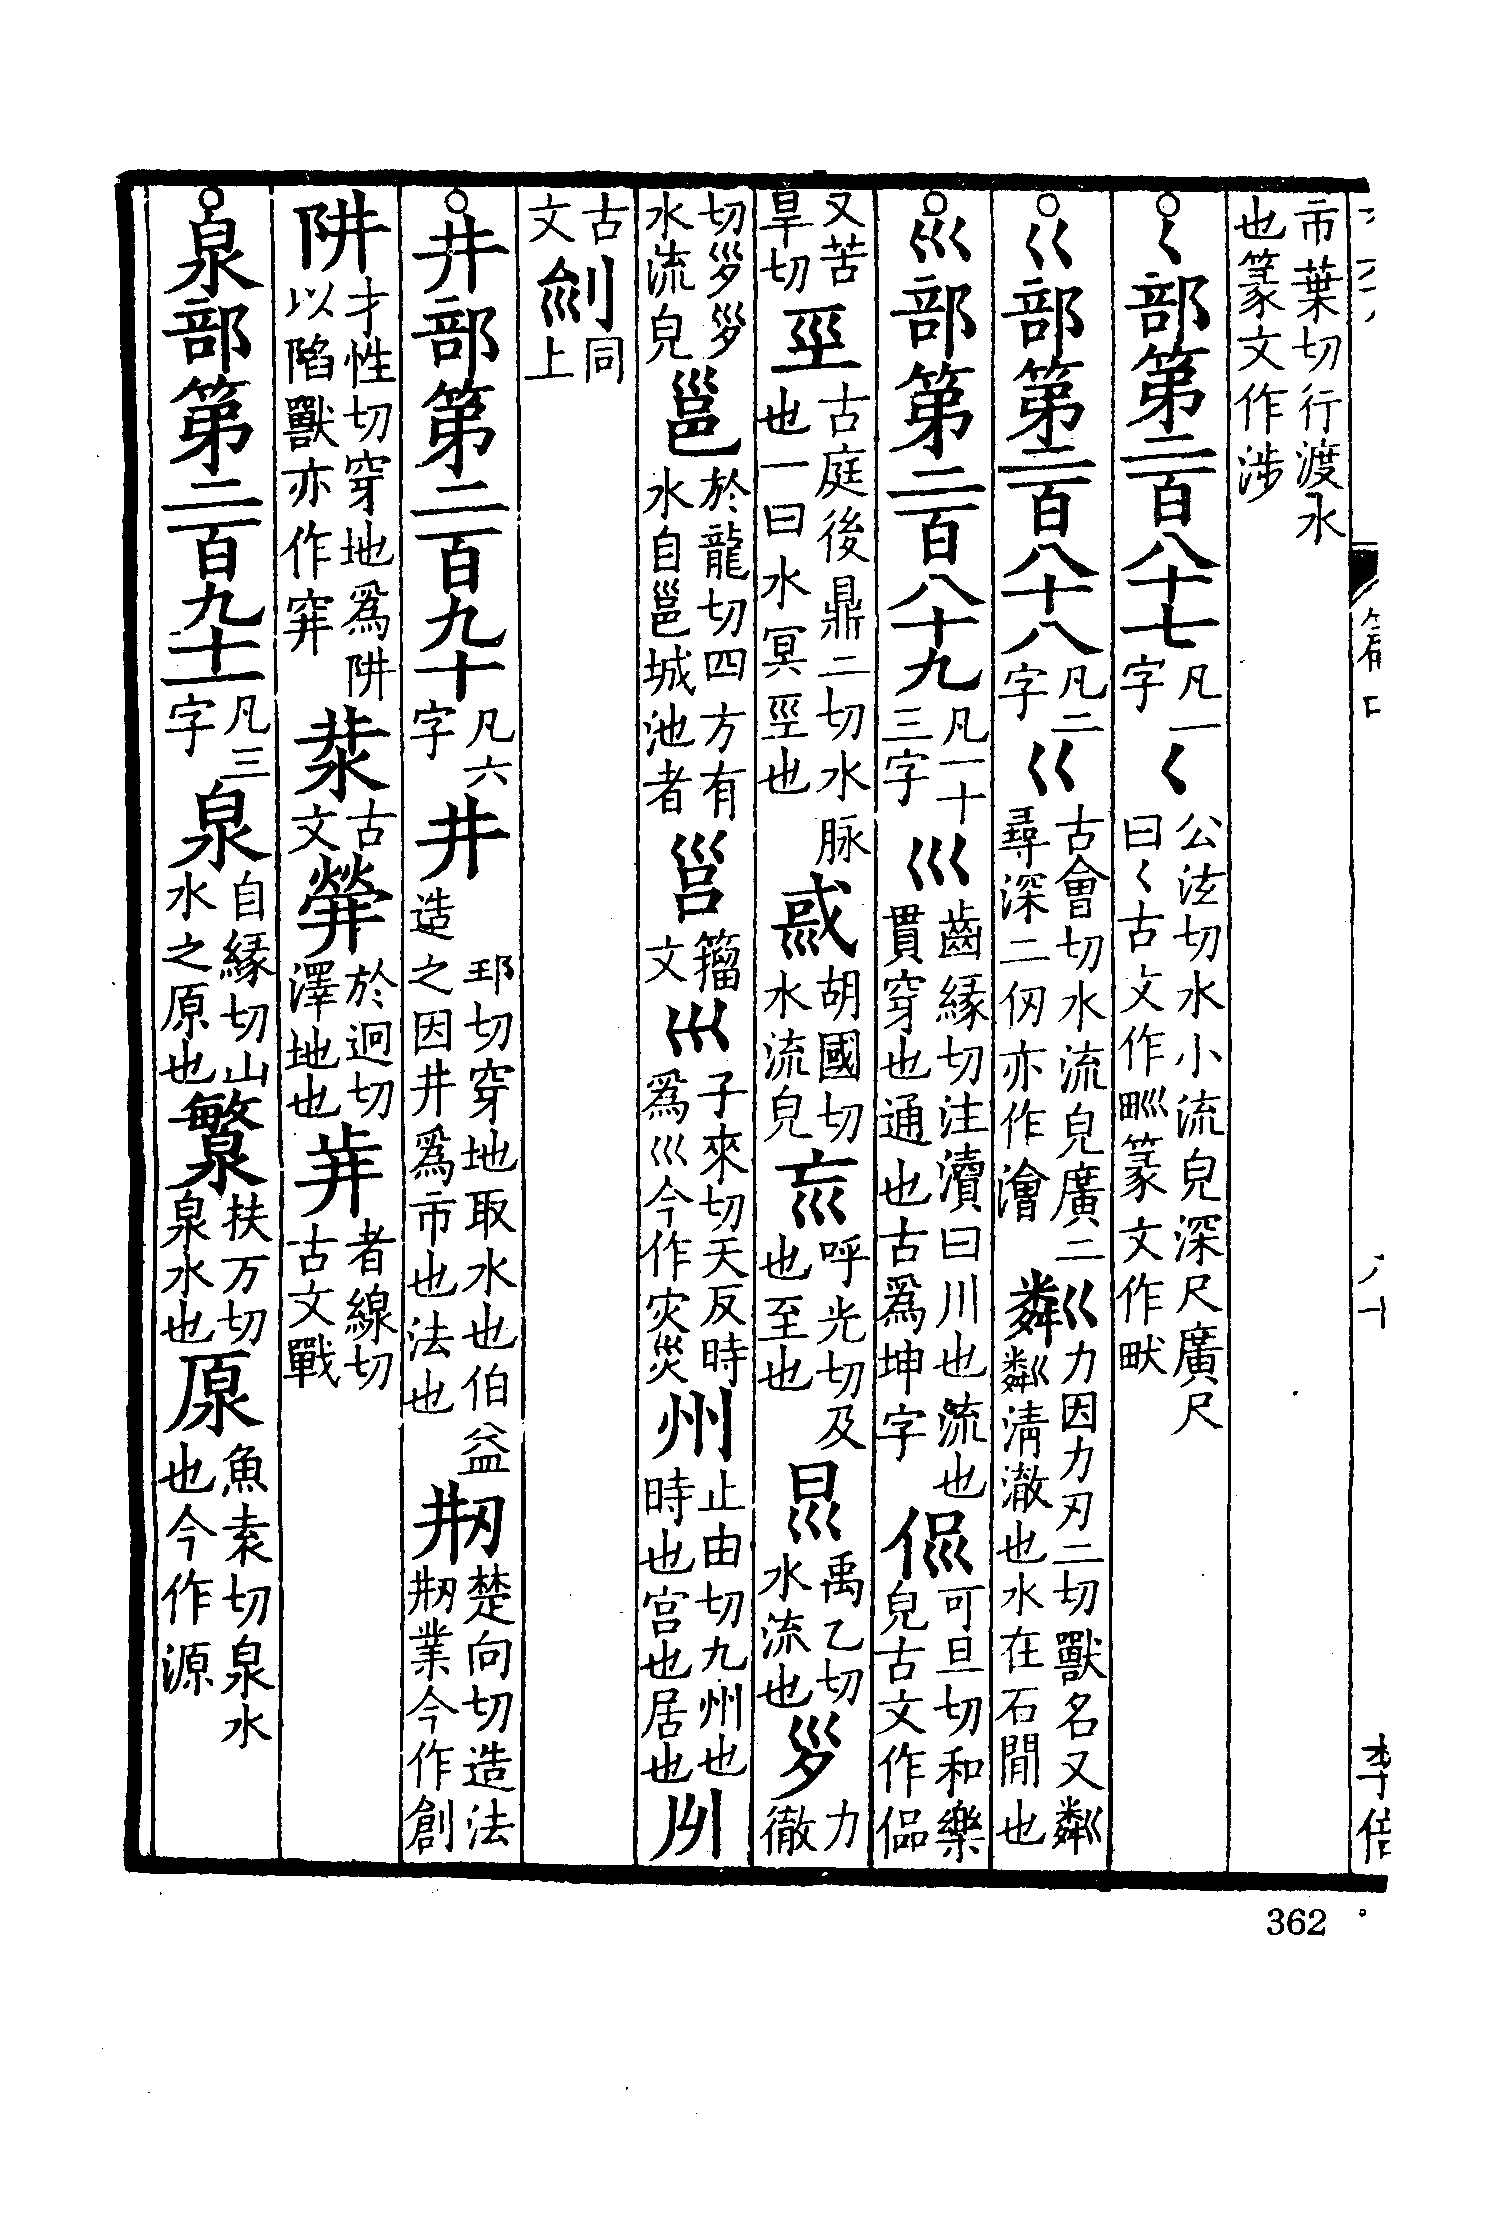 市葉切行渡水
也篆文作涉
〇𡿨部第二百八十七 凡一字 𡿨 公泫切水小流皃深尺廣尺曰𡿨古文作甽篆文作畎
〇巜部第二百八十八 凡二字 巜 古會切水流皃廣二尋深二仞亦作澮 粼 力因力刃二切獸名又粼粼清澈也水在石閒也
〇巛部第二百八十九 凡一十三字 巛 齒緣切注瀆曰川也流也貫穿也通也古爲坤字 侃 可旦切和樂皃古文作偘
又苦旱切 巠 古庭後鼎二切水脉也一曰水冥巠也 惑 胡國切水流皃 巟 呼光切及也至也 㫚 禹乙切水流也 𡿪 力徹
切𡿪𡿪水流皃 邕 於龍切四方有水自邕城池者 𡿷 籀文 𡿧 子來切天反時爲巛今作灾災 州 止由切九州也時也宫也居也 𠃕
古文 㓝 同上
〇井部第二百九十 凡六字 井 䢼切穿地取水也伯益造之因井爲市也法也 刱 楚向切造法刱業今作創
阱 才性切穿地爲阱以陷獸亦作穽 汬 古文 䒢 於迥切澤地也 𦫶 者線切古文戰
〇泉部第二百九十一 凡三字 泉 自緣切山水之原也 䋣 扶万切泉水也 厡 魚袁切泉水也今作源
李倍
362